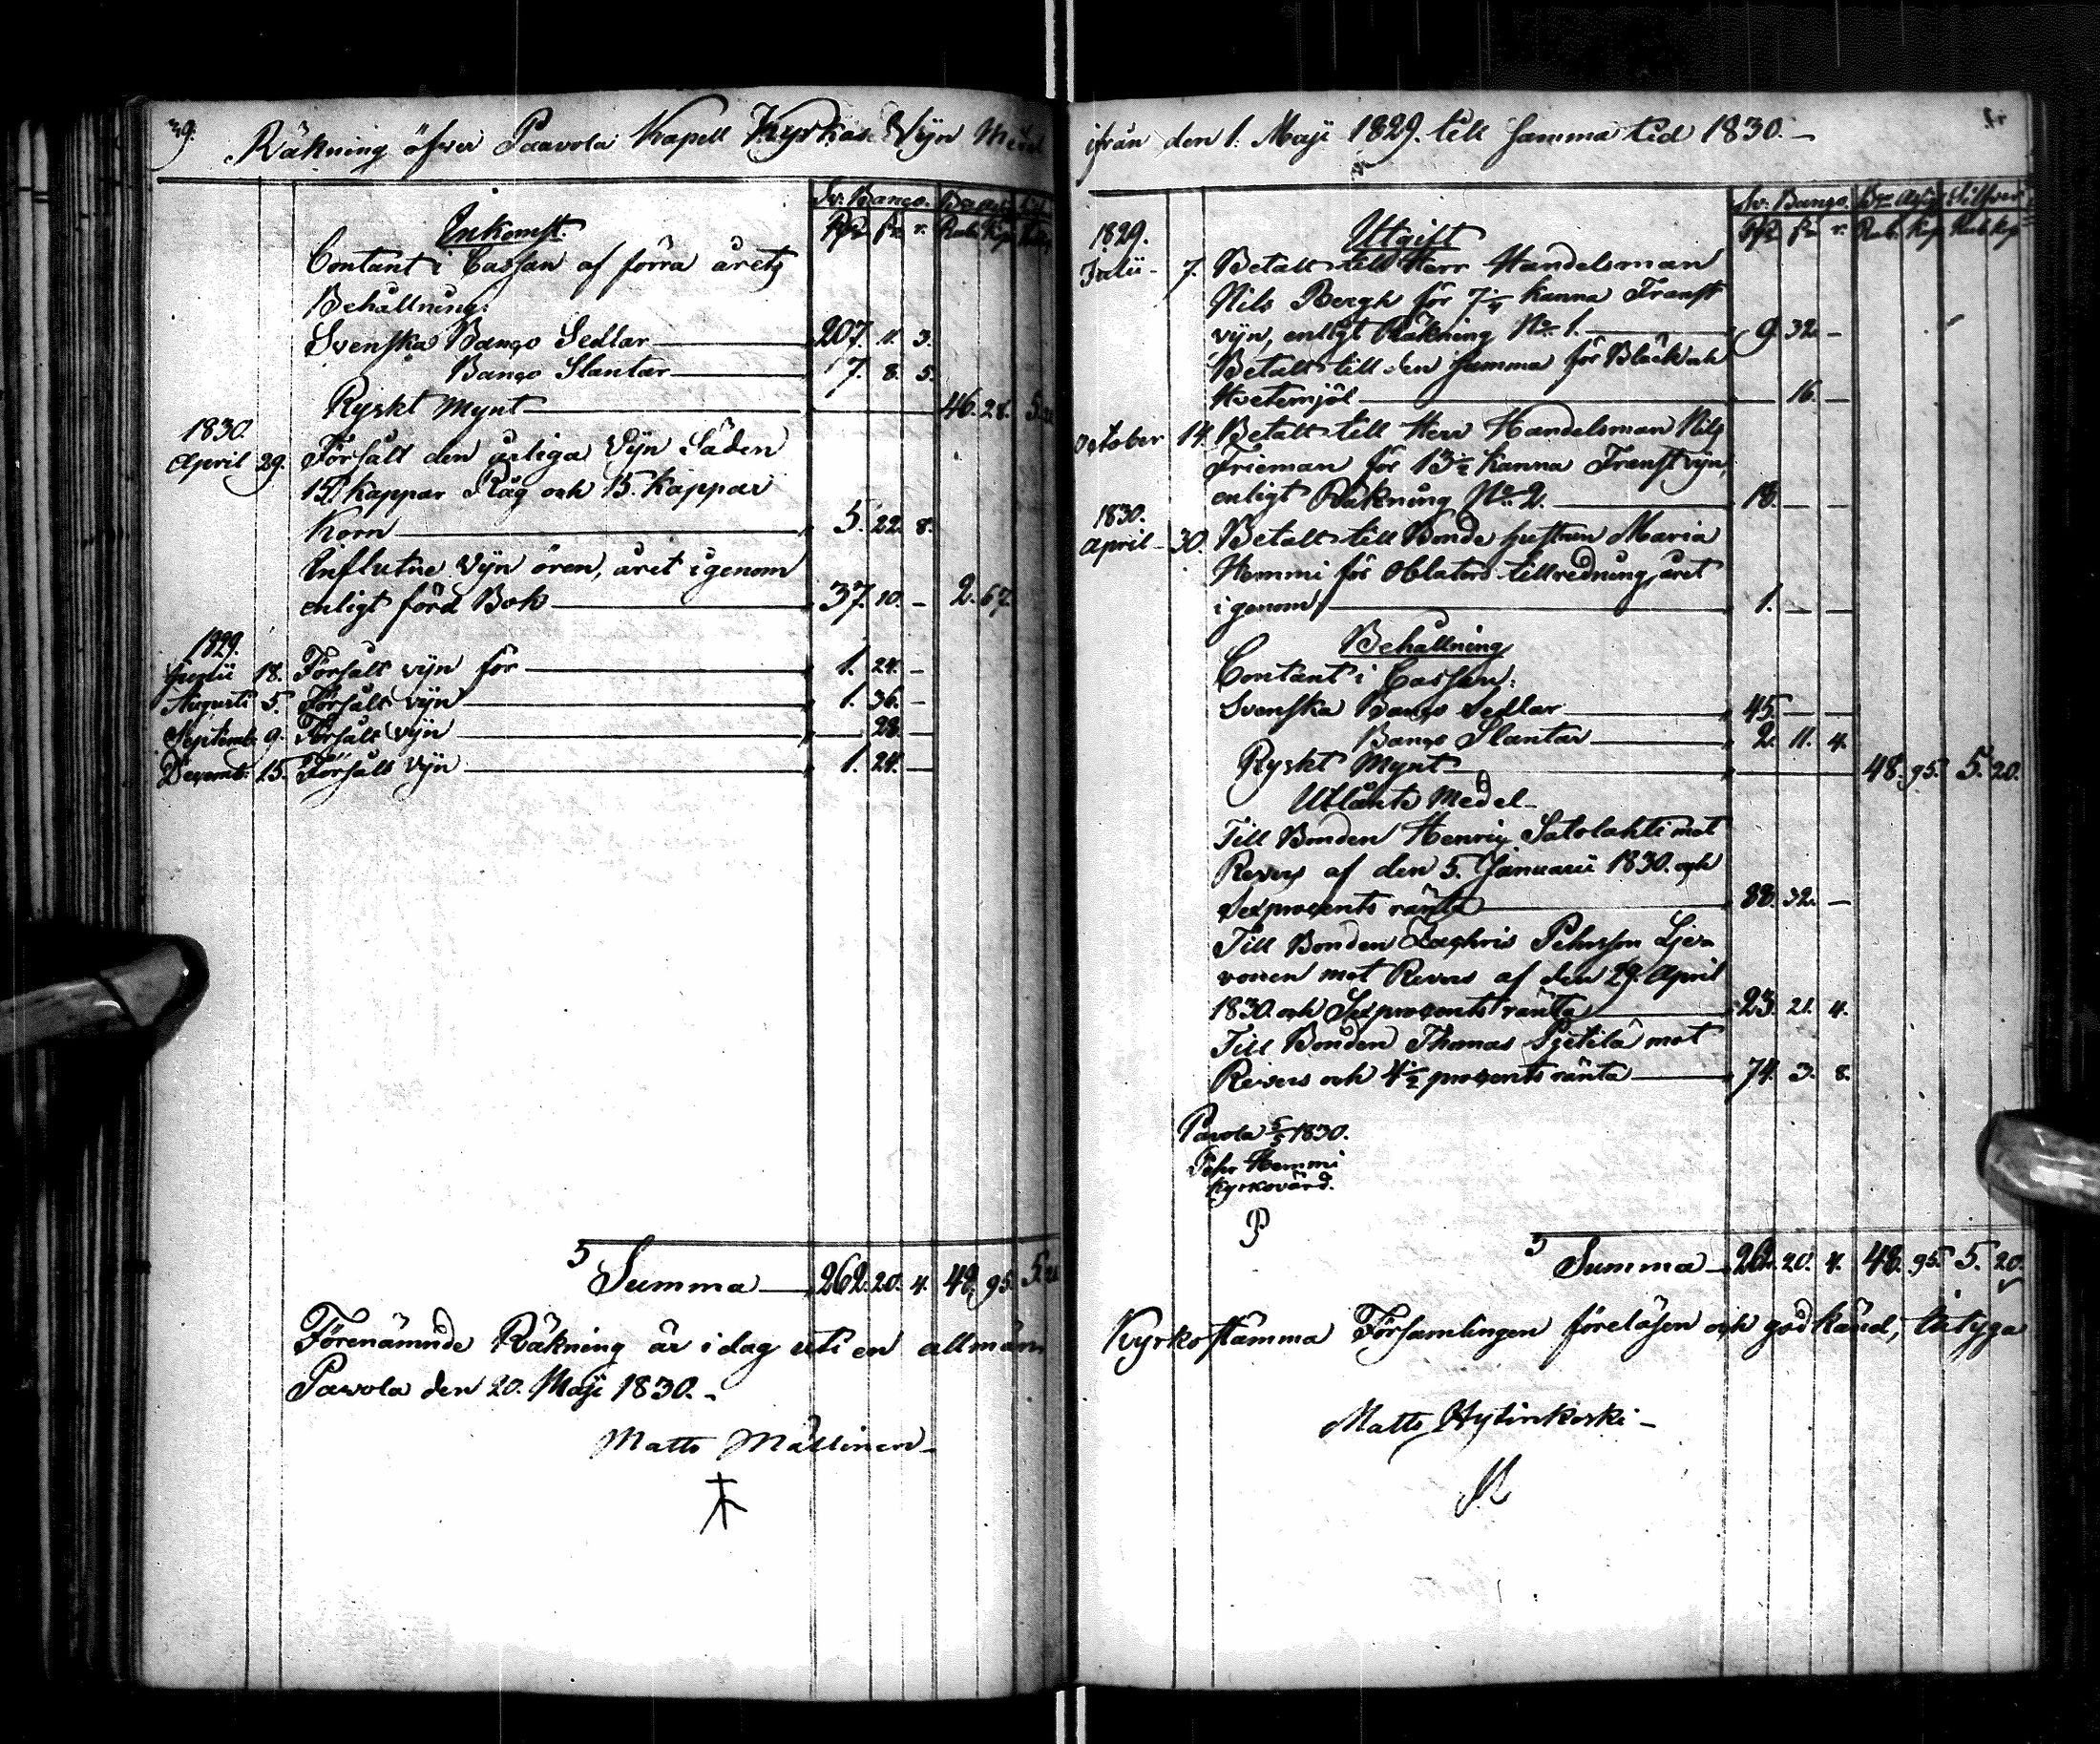 39.
Räkning öfver Paavola Kapell Kyrkas Vijn Medel
Sv: Banco. Bco Ass:
Rdr sk r. Rub. Kop.
Inkomst.
Contant i Cassan af förra årets
Behållning:
Svenska Banco Sedlar 207. 11. 3.
Banco Slantar 7. 8. 5.
Ryskt Mynt 46. 28. 5. 20
1830.
April 29. Försålt den årliga Vijn Säden
15. kappar Råg och 15. kappar
Korn 5. 22. 8.
Influtne Vijn ören, året igenom
enligt förd Bok 37. 10. – 2. 67.
1829.
Junii 18. Försålt vijn för 1. 24. –
Augusti 5. Försålt vijn 1. 36. –
Septemb. 9. Försålt vijn — 28. —
Decemb: 15. Försålt vijn 1. 24. —
Summa 262. 20. 4. 48. 95. 5. 20
Förenämnde Räkning är i dag uti en allmän
Pavola den 20. Maji 1830.
Matts Mällinen
ifrån den 1. Maji 1829. till samma tid 1830.
Sv: Banco. Bco Assig Silfver
Rdr sk r. Rub. Kop. Rub. Kop
1829. Utgift
Julii 7. Betalt till Herr Handelsman
Nils Bergh för 7 1/4 kanna Franst
vijn, enligt Räkning No 1. 9. 32. –
Betalt till den samma för Bläck och
Hvetemjöl — 16. —
October 14. Betalt till Herr Handelsman Nils
Frieman för 13 1/2 kanna Franst vijn,
enligt Räkning No 2. 18. — —
1830.
April 30. Betalt till Bonde hustrun Maria
Hemmi för Oblaters tillredning, året
igenom 1. — —
Behållning
Contant i Cassan:
Svenska Banco Sedlar 45 — —
Banco Slantar 2. 11. 4.
Ryskt Mynt 48. 95. 5. 20.
Utlånte Medel
Till Bonden Henric Satolahti mot
Revers af den 5. Januarii 1830. och
Sexprocents ränta 88. 32. –
Till Bonden Zachris Pehrsson Lje-
vonen mot Revers af den 29. April
1830. och Sexprocents ränta 23. 21. 4.
Till Bonden Thomas Pietilä mot
Revers och 4 1/2 procents ränta 74. 3. 8.
Pavola 5/5 1830.
Pehr Hemmi
Kyrkovärd.
P
Summa 262. 20. 4. 48. 95. 5. 20.
Kyrkostämma Församlingen föreläsen och godkänd, intyga
Matts Hytinkoski